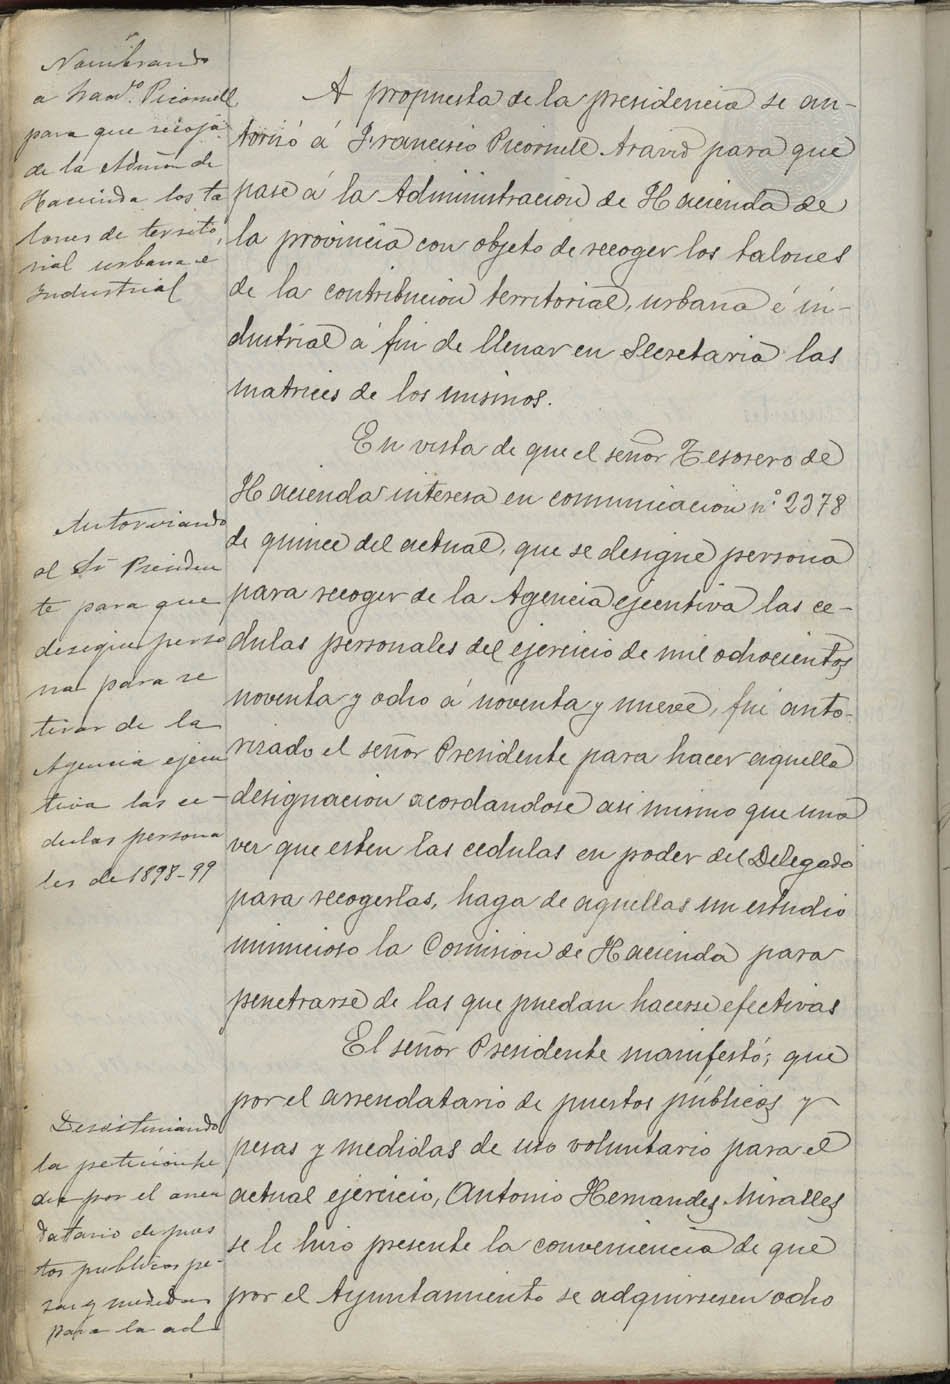 Nombrando
a Fran.co Picornell
para que recoja
de la Admon de
Hacienda los ta
lones de territo
rial urbana e
Industrial
A propuesta de la presidencia se au-
torizó á Francisco Picornell Aravid para que
pase á la Administracion de Hacienda de
la provincia con objeto de recoger los talones
de la contribucion territorial, urbana é in-
dustrial á fin de llenar en Secretaria las
matrices de los mismos.
En vista de que el señor Tesorero de
Hacienda interesa en comunicacion n.º 2378
de quince del actual, que se designe persona
para recoger de la Agencia ejecutiva las ce-
dulas personales del ejercicio de mil ochocientos
noventa y ocho á noventa y nueve, fué auto-
rizado el señor Presidente para hacer aquella
designacion acordandose asi mismo que una
vez que esten las cedulas en poder del Delegado
para recogerlas, haga de aquellas un estudio
minucioso la Comision de Hacienda para
penetrarse de las que puedan hacerse efectivas
Autorizando
al Sr Presiden
te para que
designe perso
na para re
tirar de la
Agencia ejecu
tiva las ce-
dulas persona
les de 1898-99
El señor Presidente manifestó; que
por el arrendatario de puestos públicos y
pesas y medidas de uso voluntario para el
actual ejercicio, Antonio Hernandez Miralles
se le hizo presente la conveniencia de que
por el Ayuntamiento se adquiriesen ocho
Desestimando
la peticion he
cha por el arren
datario de pues
tos publicos pe-
sas y medidas
para la ad